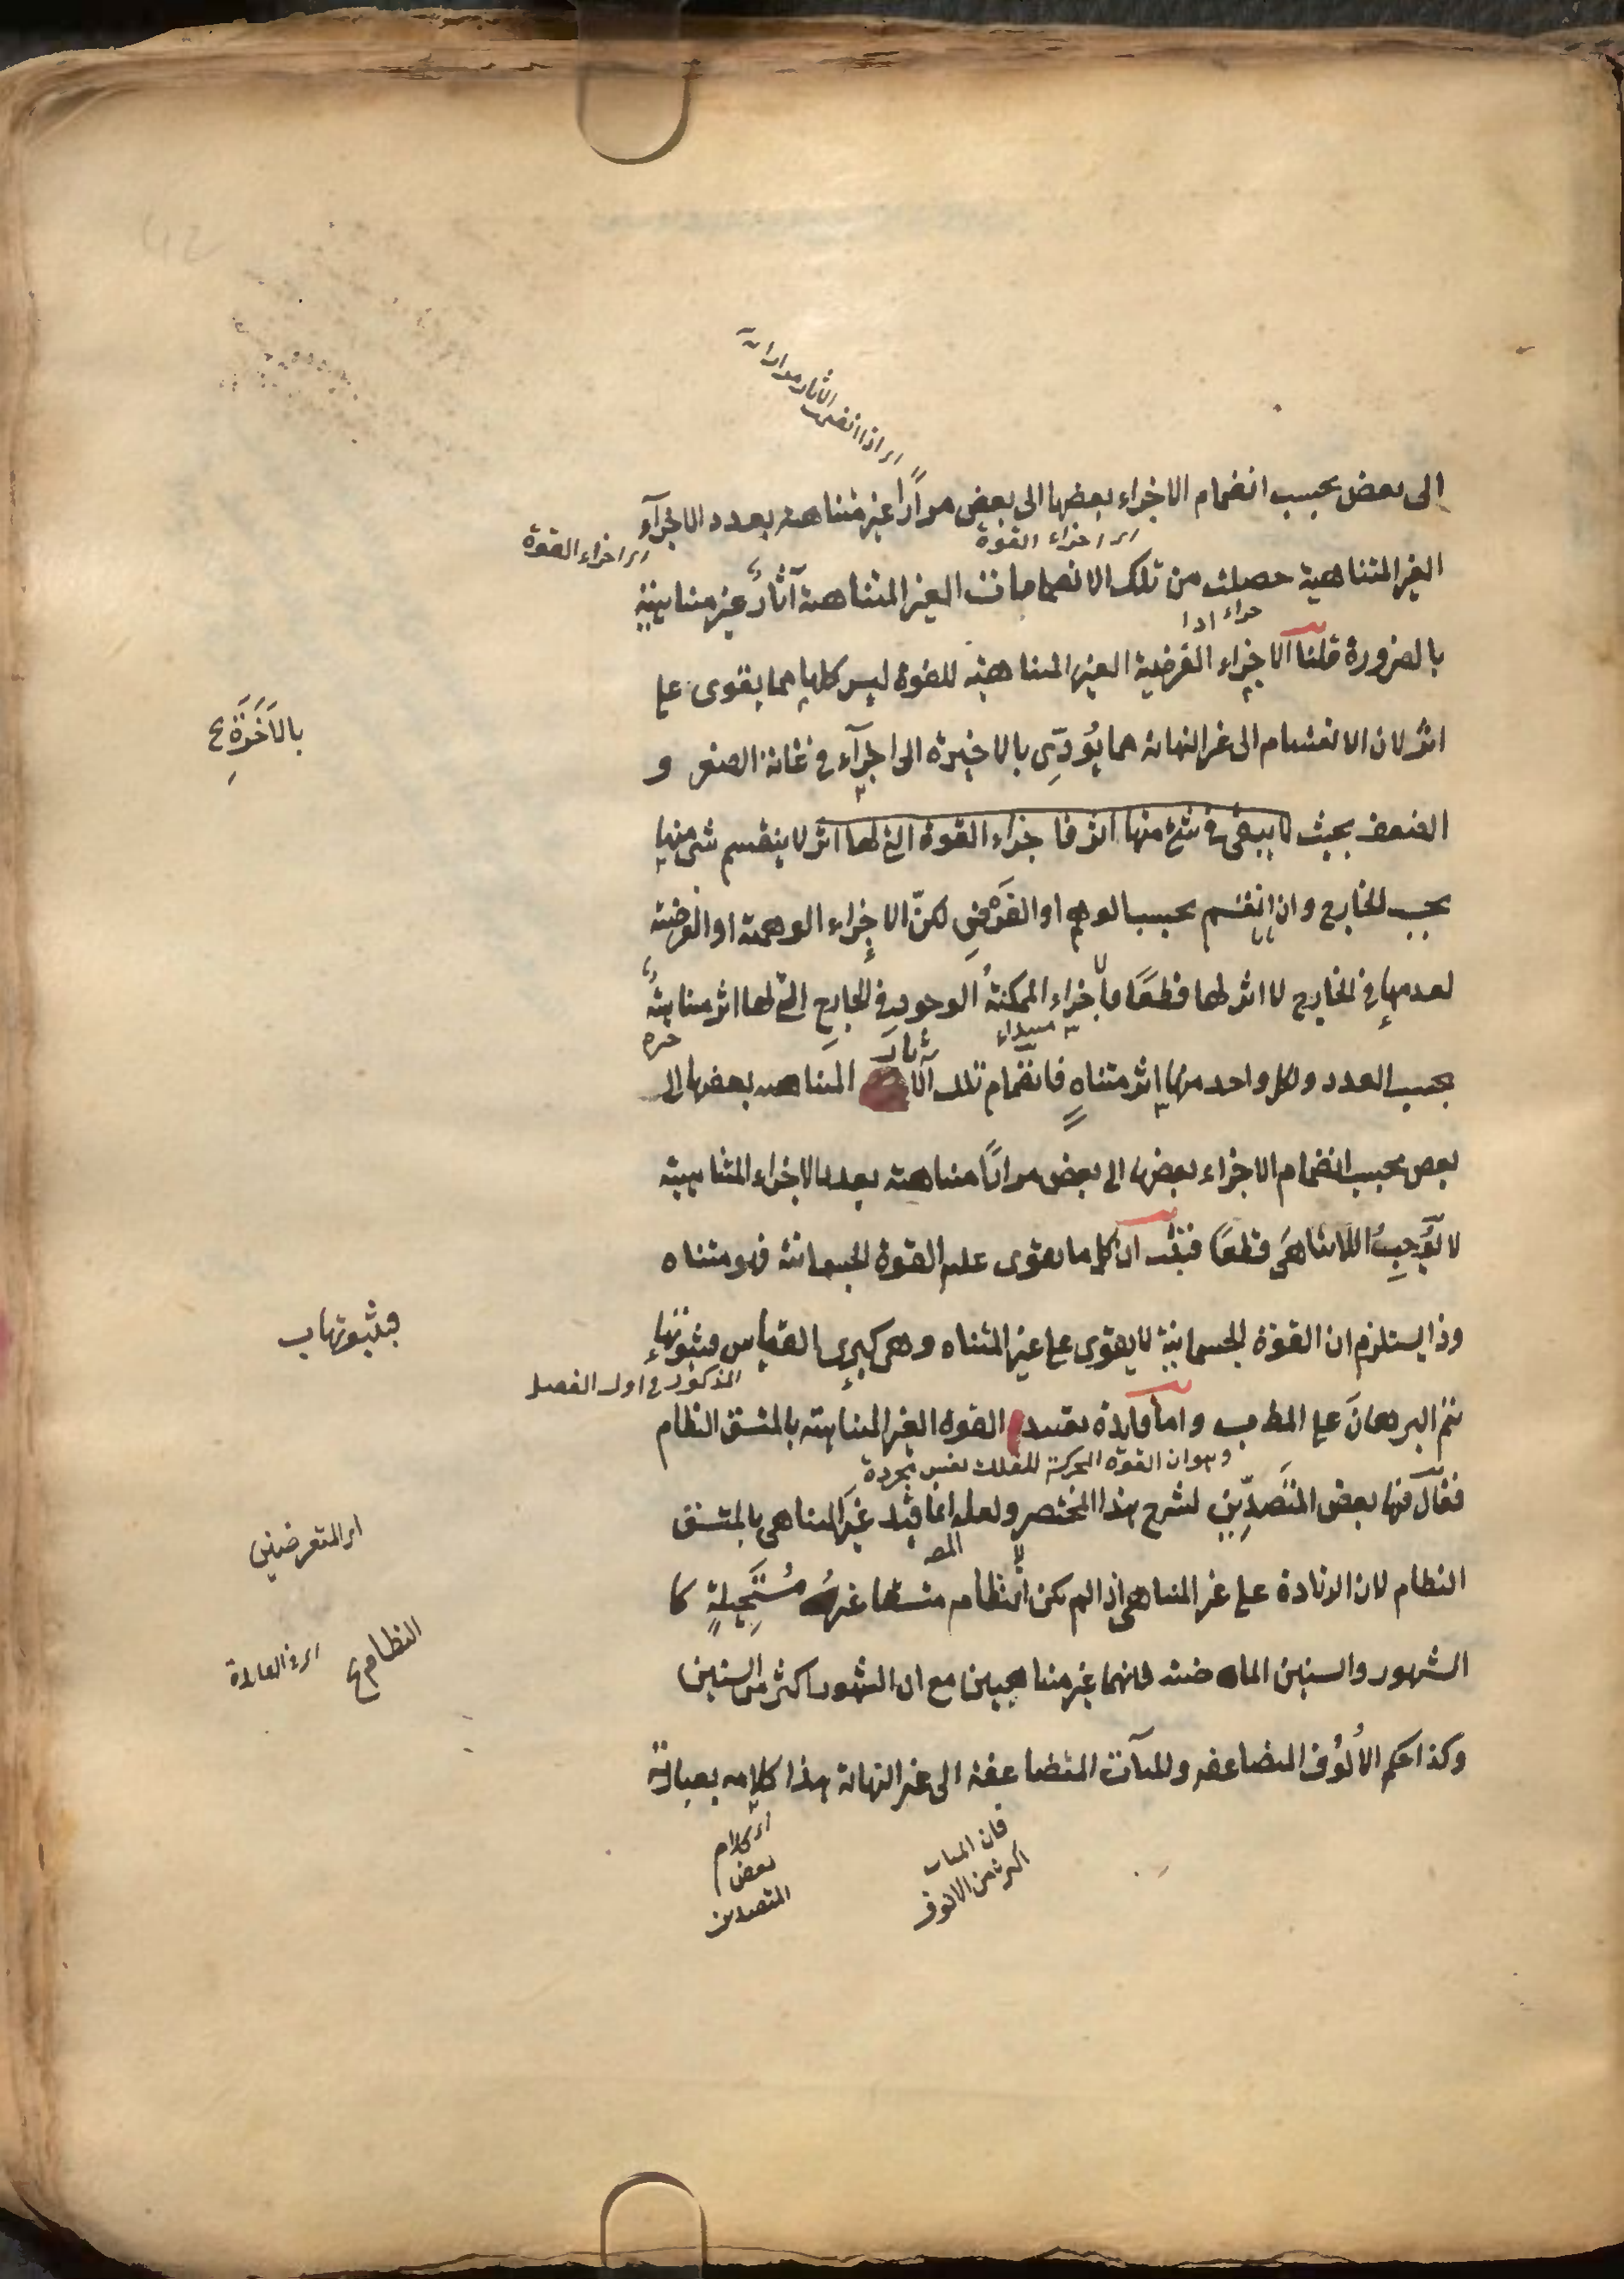 الى بعض بحسب انضمام الاجزاء بعضها الى بعض مرارًا غير متناهية بعدد الاجزآء
اى اجزاء القوة
اى اجزاء القوة
الغير المتناهية حصلت من تلك الانضمامات الغير المتناهية آثارٌ غير متناهية
بالضرورة قلنا الاجزاء الفرضية الغير المتناهية للقوة ليس كلها مما يقوى على
اثر لان الانقسام الى غير النهاية مما يُودّى بالاخيرة الى اجزآء فى غاية الصغر و
بالاَخَرَةِ
الضعف بحيث لا يبقى فى شئ منها اثر فاجزاء القوة التى لها اثر لا ينقسم شئ منها
بحسب الخارج وان انقسم بحسب الوهم او الفرض لكنّ الاجزاء الوهمية او الفرضية
لعدمها فى الخارج لا اثر لها قطعًا فالاجزاء الممكنةُ الوجود فى الخارج التى لها اثر متناهيةٌ
بحسب العدد ولكل واحد منها اثر متناهٍ فانضمام تلك الاثار المتناهية بعضها الى
بعض بحسب انضمام الاجزاء بعضها الى بعض مرارًا متناهية بعدد الاجزاء المتناهية
لا يُوجِبُ اللاتناهىَ قطعًا فثبت ان كل ما يقوى عليه القوة الجسمانية فهو متناه
وذا يستلزم ان القوة الجسمانية لا يقوى على غير المتناه وهى كبرى القياس فبثبوتها
فبثبوتها ب
المذكور فى اول الفصل
يتم البرهانَ على المطـ ب واما فايدة تقييد القوة الغير المتناهية بالمتسق النظام
وهو ان القوة المحركة للفلك نفس مجردة
فقال فيها بعض المتَصَدِّين لشرح هذا المختصر ولعله انما قيد غيرَ المتناهى بالمتسق
اى المتعرضين
المصـ
النظام لان الزيادة على غير المتناهى اذا لم يكن النظام متسقا غير مُسْتَحِيلةٍ كا
النظام
الشهور والسنين الماضية فانهما غير متناهيين مع ان الشهور اكثر من السنين
وكذا حكم الأُلوُف المتضاعفة والمآت المتضاعفة الى غير النهاية هذا كلامه بعبارته
فان المآت
اكثر من الالوف
اى كلام
بعض
المتصدين